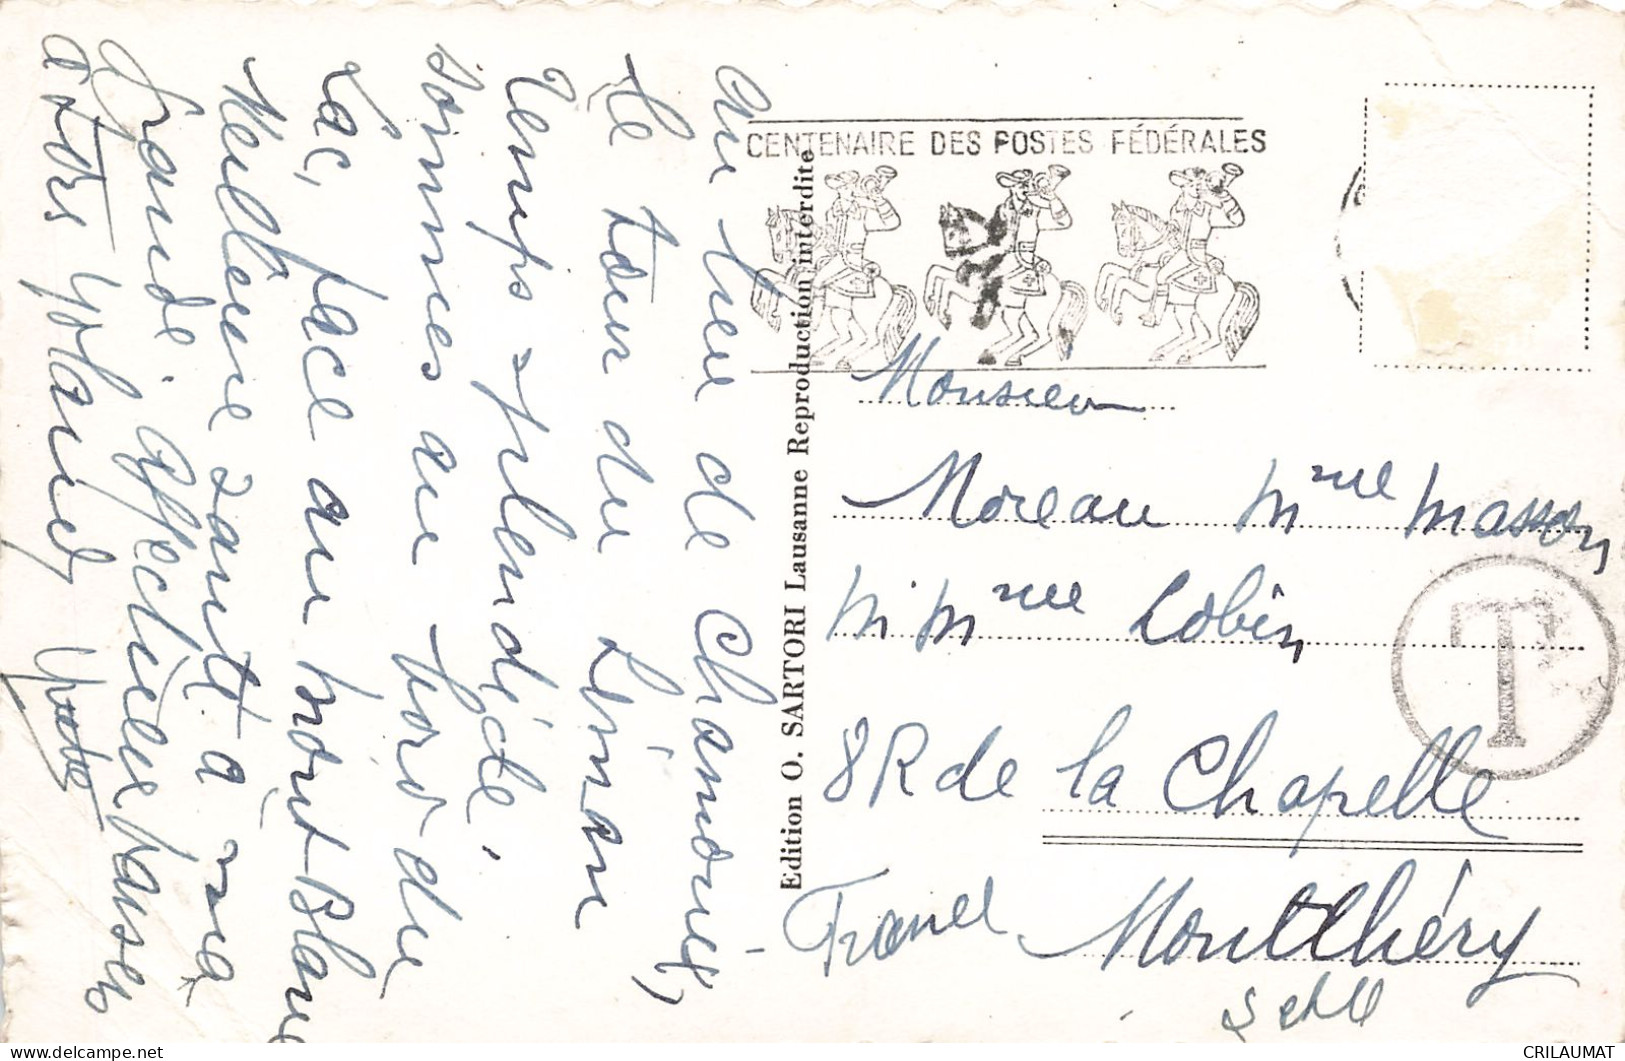 Au lieu de Chamonix,
le tour du Léman
Temps splendide,
sommes au bord du
Lac, face au mont Blanc
Meilleure santé à ma
Grande. Affectueux baisers
à tous Yolande Yvette
CENTENAIRE DES POSTES FÉDÉRALES
Edition O. SARTORI Lausanne Reproduction interdite
Monsieur
Moreau Mme Masson
M Mme Lobin
8 R de la Chapelle
Montlhéry
France
S et O
T
CRILAUMAT